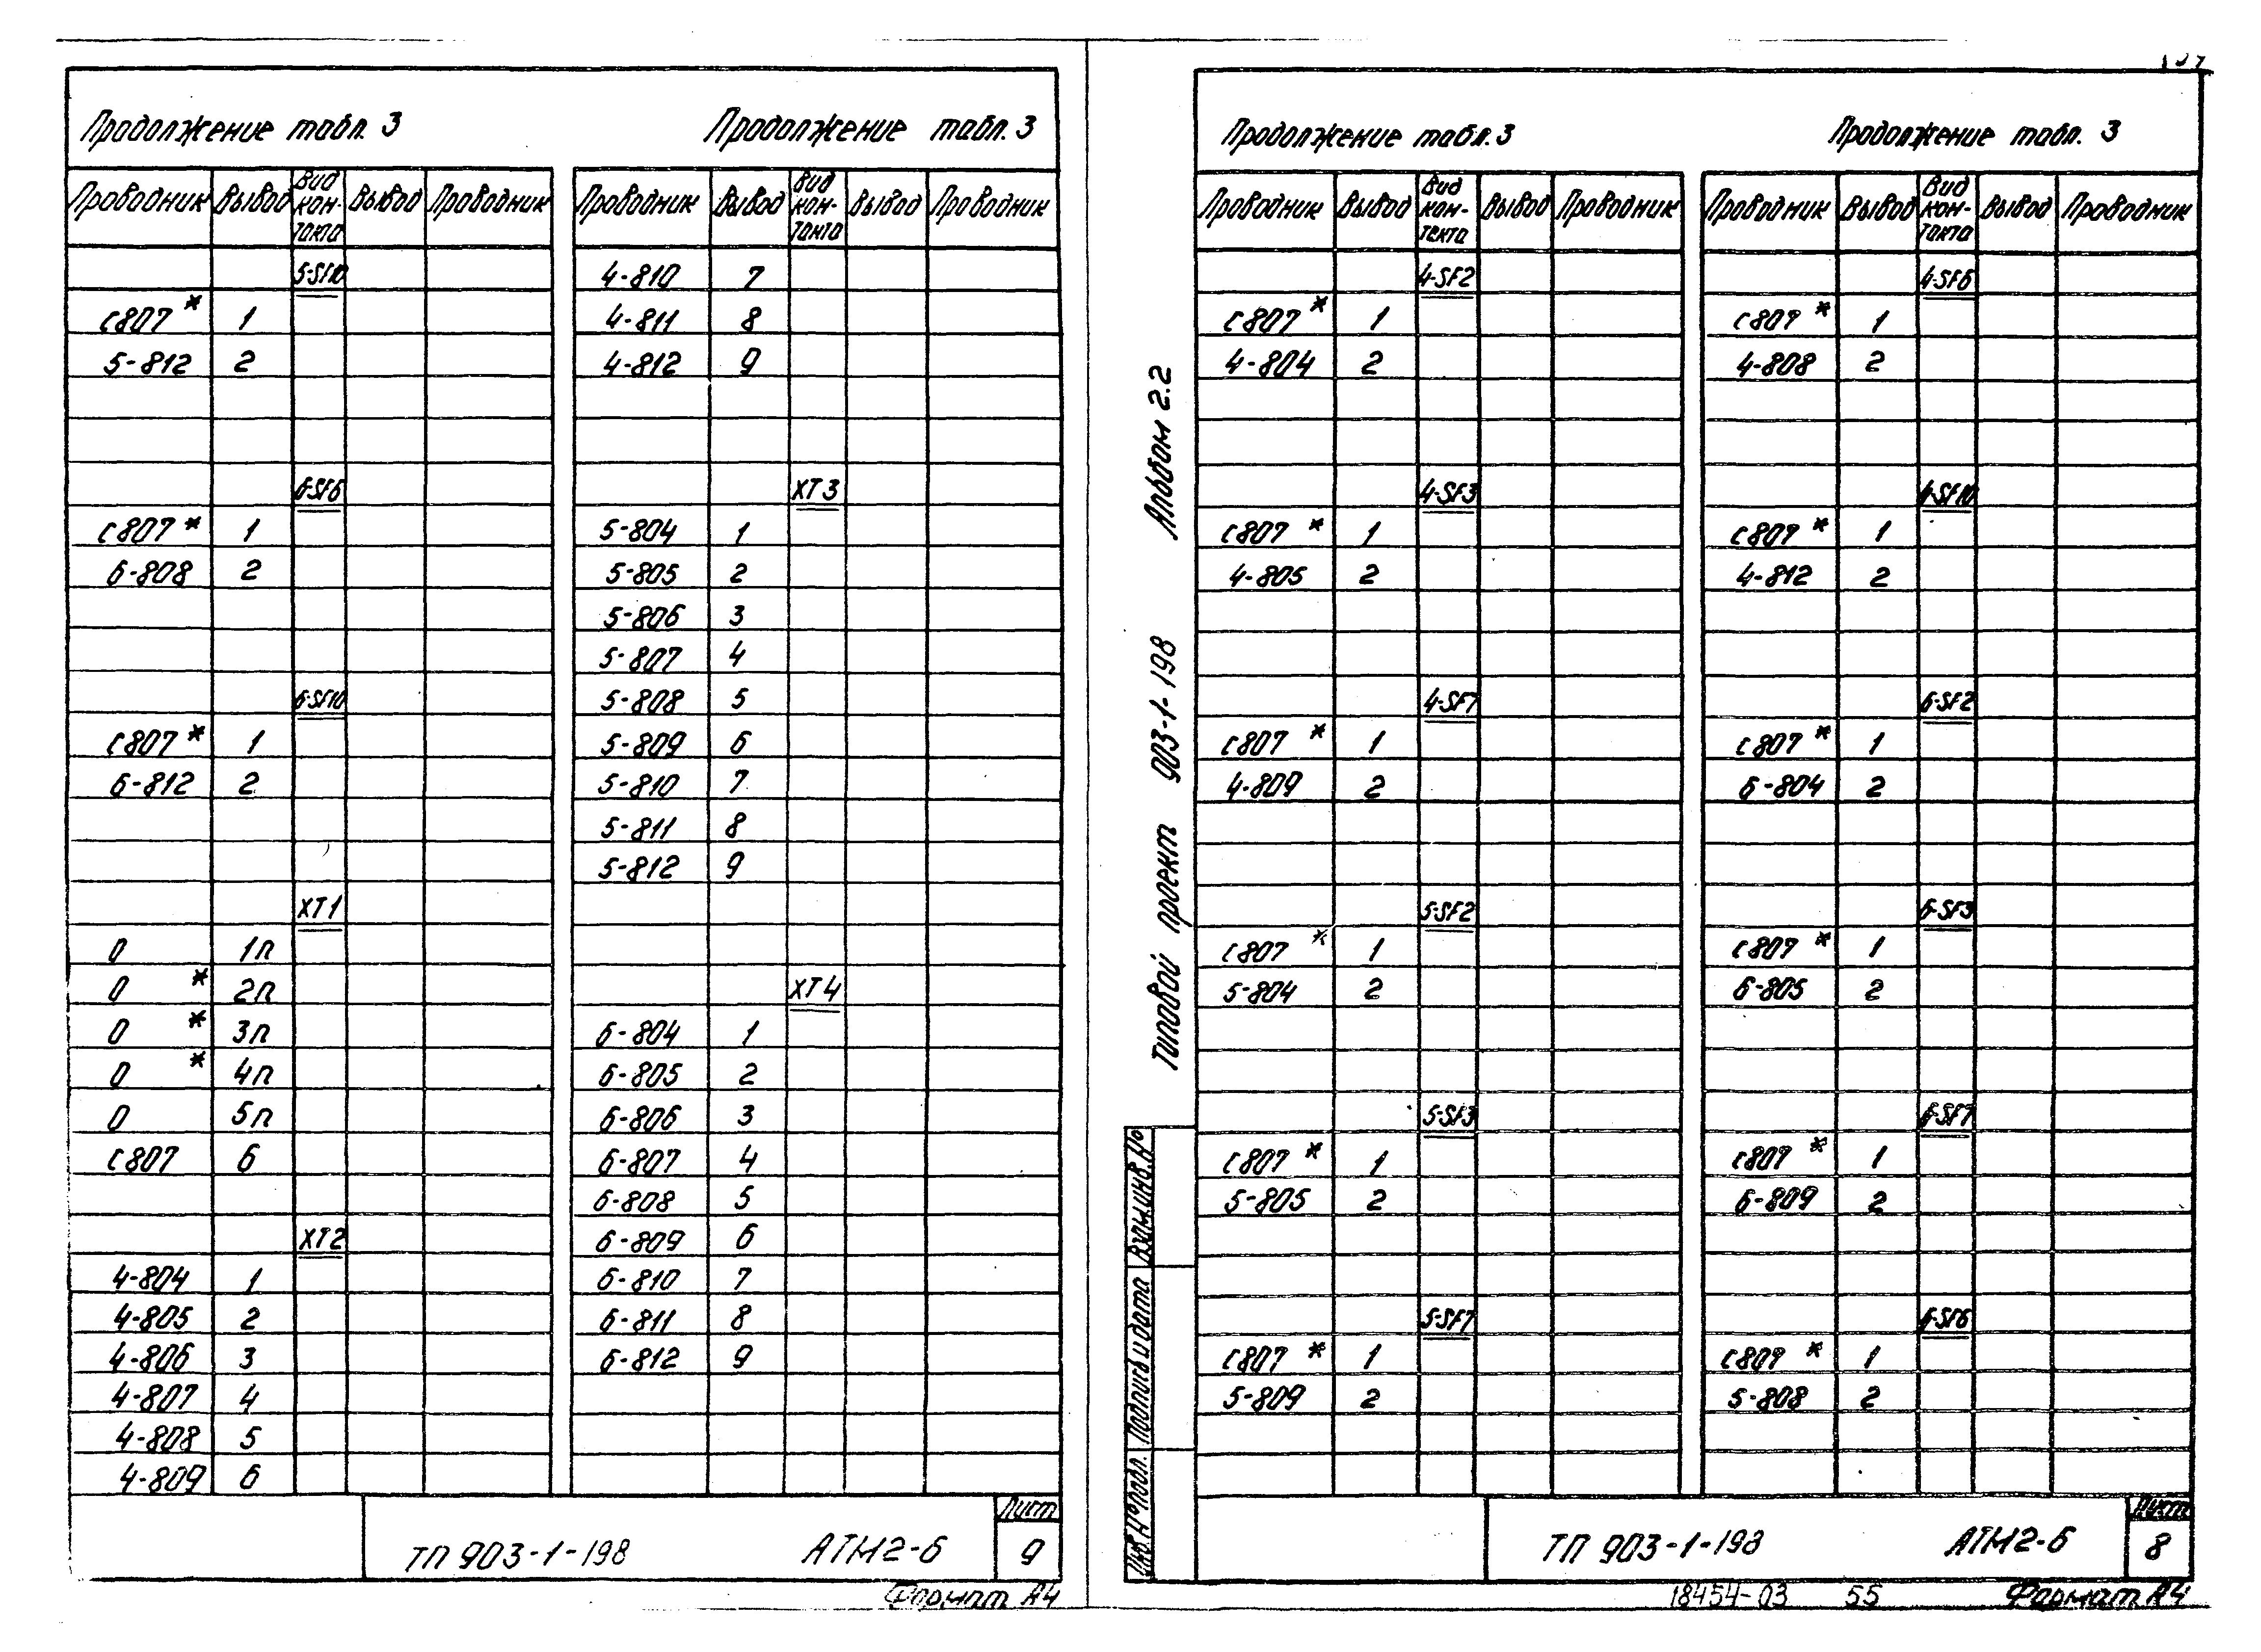 Продолжение табл. 3
Продолжение табл. 3
Проводник Вывод Вид кон- такта Вывод Проводник
5-SF10
С807 * 1
5-812 2
6-SF6
С807 * 1
6-808 2
6-SF10
С807 * 1
6-812 2
XT1
0 1п
0 * 2п
0 * 3п
0 * 4п
0 5п
С807 6
XT2
4-804 1
4-805 2
4-806 3
4-807 4
4-808 5
4-809 6
Проводник Вывод Вид кон- такта Вывод Проводник
4-810 7
4-811 8
4-812 9
XT3
5-804 1
5-805 2
5-806 3
5-807 4
5-808 5
5-809 6
5-810 7
5-811 8
5-812 9
XT4
6-804 1
6-805 2
6-806 3
6-807 4
6-808 5
6-809 6
6-810 7
6-811 8
6-812 9
ТП 903-1-198 АТМ2-6
Лист
9
Формат А4
Альбом 2.2
Типовой проект 903-1-198
Взам.инв.№
Подпись и дата
Инв.№ подл.
Продолжение табл. 3
Продолжение табл. 3
Проводник Вывод Вид кон- такта Вывод Проводник
4-SF2
С807 * 1
4-804 2
4-SF3
С807 * 1
4-805 2
4-SF7
С807 * 1
4-809 2
5-SF2
С807 * 1
5-804 2
5-SF3
С807 * 1
5-805 2
5-SF7
С807 * 1
5-809 2
Проводник Вывод Вид кон- такта Вывод Проводник
4-SF6
С807 * 1
4-808 2
4-SF10
С807 * 1
4-812 2
6-SF2
С807 * 1
6-804 2
6-SF3
С807 * 1
6-805 2
6-SF7
С807 * 1
6-809 2
С807 * 1
5-808 2
ТП 903-1-198 АТМ2-6
Лист
8
18454-03 55 Формат А4